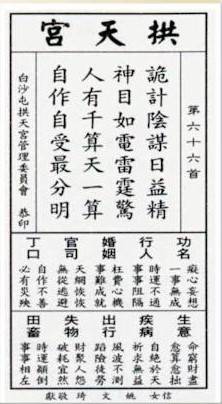 拱天宮
第六十六首
詭計陰謀日益精
神目如電雷霆驚
人有千算天一算
自作自受最分明
白沙屯拱天宮管理委員會 恭印
功名
癡心妄想
一事無成
行人
時運不通
事事阻隔
婚姻
枉費心機
事難成就
官司
天網恢恢
無從逃避
丁口
自作不善
必有災殃
生意
命窮財盡
愈算愈拙
疾病
自絕於天
祈求無益
出行
風波不測
蹈險徒勞
失物
財聚人怨
破耗宜然
田畜
時運顛倒
事事相左
信女 姚文琦敬獻